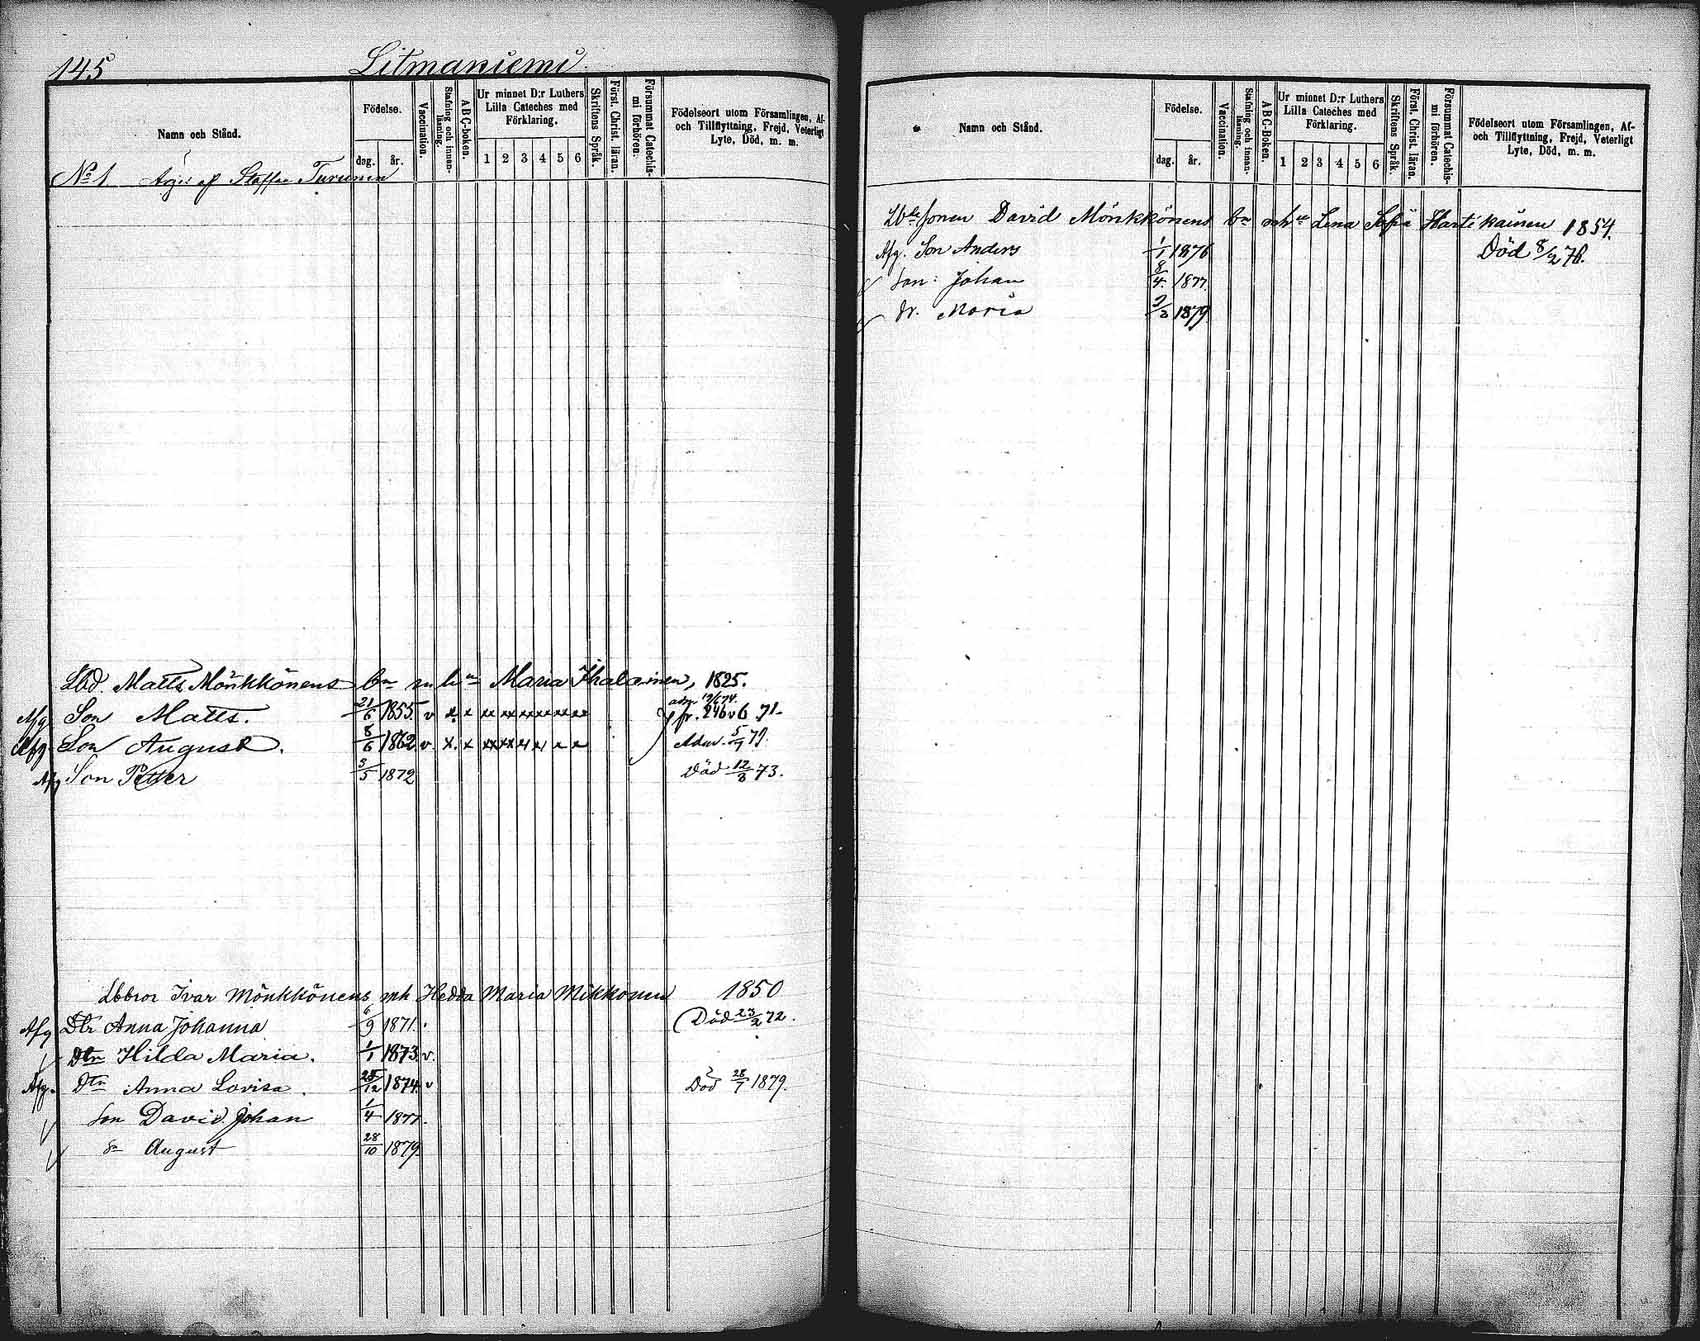 145 Litmaniemi
Namn och Stånd.
Födelse.
dag. år.
Vaccination.
Stafning och innanläsning.
ABC-boken.
Ur minnet D:r Luthers Lilla Cateches med Förklaring.
1 2 3 4 5 6
Skriftens Språk.
Först. Christ. läran.
Försummat Catechismi förhören.
Födelseort utom Församlingen, Af- och Tillflyttning, Frejd, Veterligt Lyte, Död, m. m.
No 1 af Staffan Turunen
Lbd. Matts Mönkkönens bn m hu Maria Ihalainen, 1825.
Afg Son Matts. 21/6 1855 v x x xx xx xx xx xx xx fr. 246 v 6 71.
Afg. Son August. 8/6 1862 v. x. x xx xx x x x x Adm. 5/7 79.
Afg Son Petter 3/5 1872 Död 12/8 73.
Lbbror Ivar Mönkkönens mh Hedda Maria Mikkonen 1850
Afg Dtr Anna Johanna 6/9 1871. Död 23/2 72.
Dtr Hilda Maria. 1/1 1873 v.
Afg. Dtr Anna Lovisa. 25/12 1874 v Död 28/7 1879.
Son David Johan 1/4 1877.
Sn August 28/10 1879
Namn och Stånd.
Födelse.
dag. år.
Vaccination.
Stafning och innanläsning.
ABC-Boken.
Ur minnet D:r Luthers Lilla Cateches med Förklaring.
1 2 3 4 5 6
Skriftens Språk.
Först. Christ. läran.
Försummat Catechismi förhören.
Födelseort utom Församlingen, Af- och Tillflyttning, Frejd, Veterligt Lyte, Död, m. m.
Lbde sonen David Mönkkönens bn mhu Lena Sofia Hartikainen 1854.
Afg. Son Anders 1/1 1876 Död 8/2 76.
Son: Johan 8/4. 1877.
Dr. Maria 1879